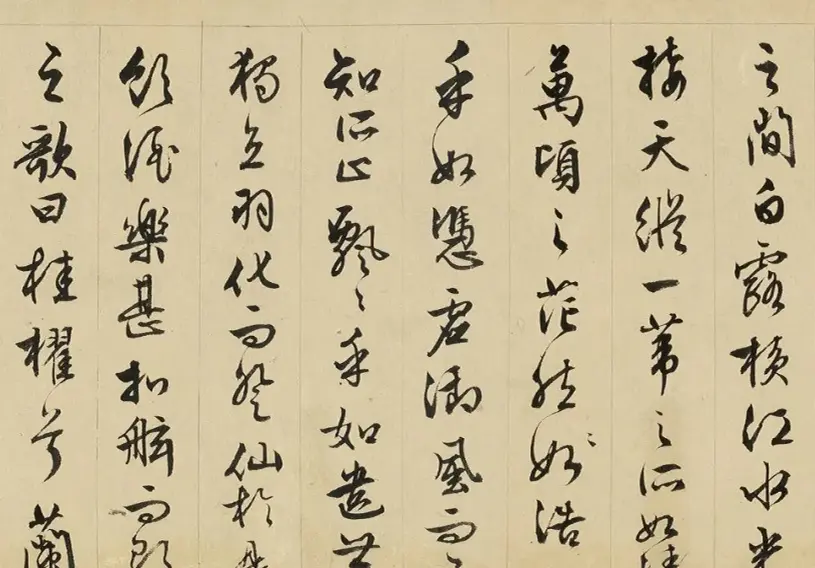 之間白露橫江水光
接天縱一葦之所如
萬頃之茫然如浩
乎如憑虛御風而
知所止飄〻乎如遺世
獨立羽化而登仙於是
飲酒樂甚扣舷而
之歌曰桂櫂兮蘭